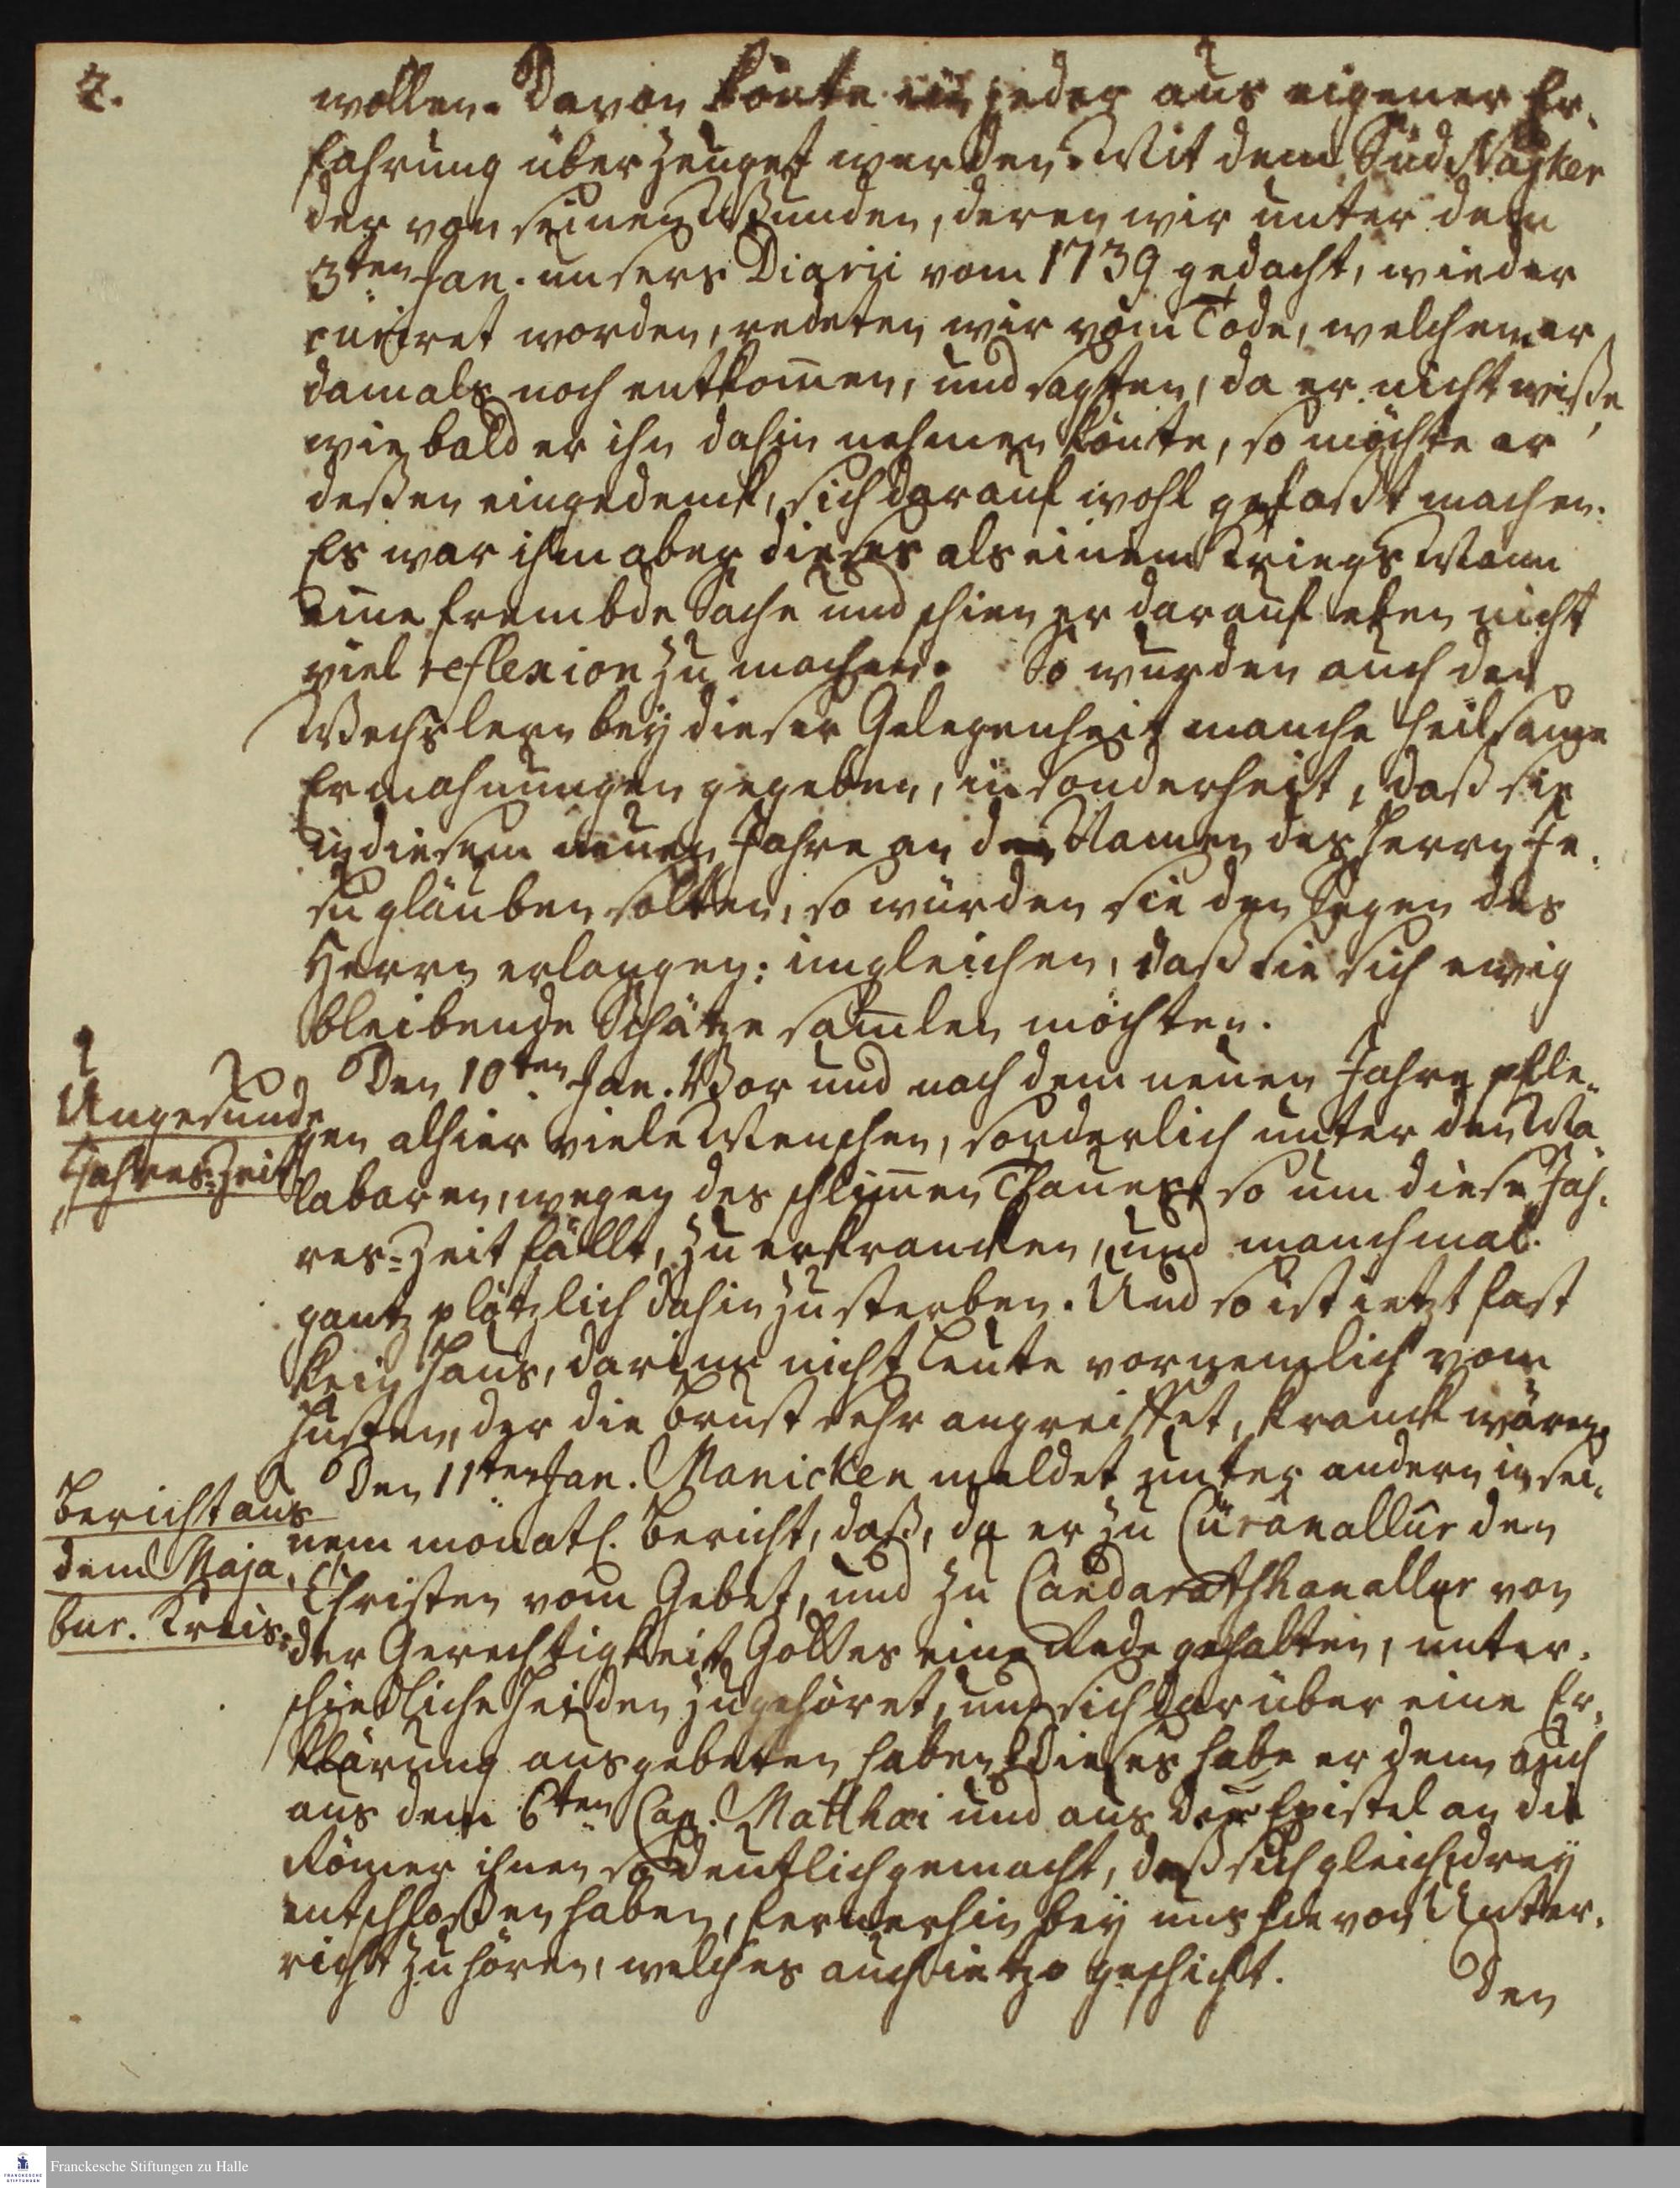 2.
wollen. Davon könte ein jeder aus eigener Er-
fahrung überzeuget werden. Mit dem
der von seinen Wunden, deren wir unter dem
3ten Jan. unsers Diarii vom 1739 gedacht, wieder
curiret worden, redeten wir vom Tode, welchem er
damals noch entkom̄en, und sagten, da er nicht wiße,
wie bald er ihn dahin nehmen könte, so möchte er
deßen eingedenck, sich darauf wohl gefaßt machen.
Es war ihm aber dieses als einem Kriegs Mann
eine frembde Sache und schien er darauf eben nicht
viel reflexion zu machen. So wurden auch den
Wechslern bey dieser Gelegenheit manche heilsame
Ermahnungen gegeben, insonderheit, daß sie
in diesem neuen Jahre an den Namen des Herrn Je-
su gläuben solten, so würden sie den Segen des
Herrn erlangen: imgleichen, daß sie sich ewig
bleibende Schätze sam̄len möchten.
Ungesunde
Jahres-Zeit
Den 10ten Jan. Vor und nach dem neuen Jahre pfle-
gen alhier viele Menschen, sonderlich unter den Ma-
labaren, wegen des schlim̄en Thaues, so um diese Jah-
res-Zeit fällt, zu erkrancken, und manchmal
gantz plötzlich dahin zu sterben. Und so ist ietzt fast
kein Haus, darinn nicht Leute vornemlich vom
Husten, der die Brust sehr angreiffet, kranck wären.
Bericht aus
dem Maja-
bur. Kreis.
Den 11ten Jan. Manicken meldet unter andern in sei-
nem monatl. Bericht, daß, da er zu Cüranallûr den
Christen vom Gebet, und zu Candaratshanallur von
der Gerechtigkeit Gottes eine Rede gehalten, unter-
schiedliche Heiden zugehöret, und sich darüber eine Er-
klärung ausgebeten haben. Dieses habe er denn auch
aus dem 6ten Cap. Matthæi und aus der Epistel an die
Römer ihnen so deutlich gemacht, daß sich gleich drey
entschloßen haben, fernerhin bey uns hievon Unter-
richt zu hören, welches auch ietzo geschicht.
Den
Franckesche Stiftungen zu Halle